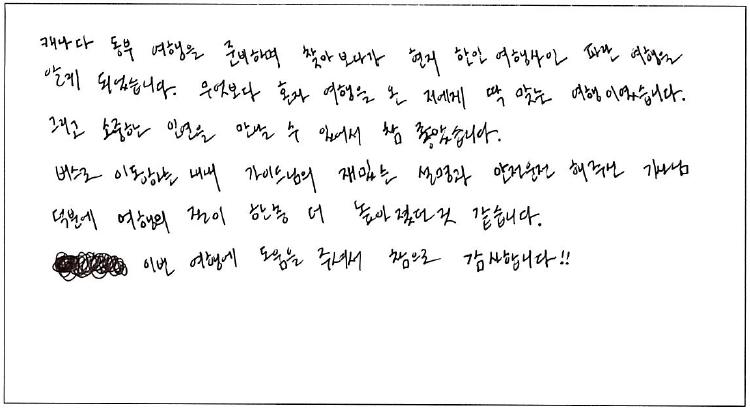 캐나다 동부 여행을 준비하며 찾아보다가 현지 한인 여행사인 파란 여행을
알게 되었습니다. 무엇보다 혼자 여행을 온 저에게 딱 맞는 여행이였습니다.
그리고 소중한 인연을 만날 수 있어서 참 좋았습니다.
버스로 이동하는 내내 가이드님의 재밌는 설명과 안전운전 해주신 기사님
덕분에 여행의 질이 한층 더 높아졌던 것 같습니다.
이번 여행에 도움을 주셔서 참으로 감사합니다!!